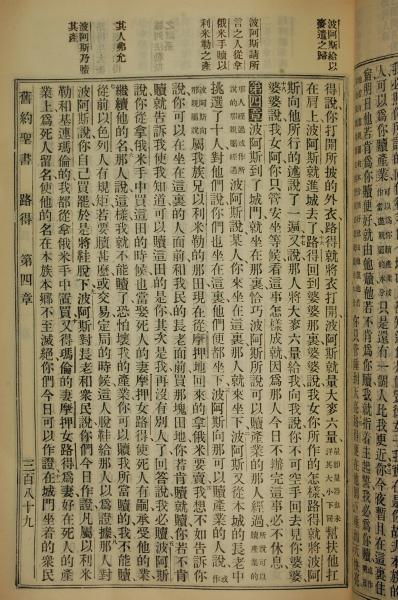 人可以爲你贖產業
只是還有一個人比我更近你今夜暫且在這裏
宿明日他若肯爲你贖
波阿斯給以麥遣之歸
波阿斯請所言之人從拿俄米手贖以利米勒之產
其人弗允
波阿斯乃贖其產
得說你打開所披的外衣路得就將衣打開波阿斯就量大麥六量幫扶他扛
在肩上波阿斯就進城去了路得回到婆婆那裏婆婆說我女你所作的怎樣路得就將波阿
斯向他所行的述說了一遍又說那人將大麥六量給我向我說你不可空手回去見你婆婆
婆婆說我女阿你只管安坐等候看這事怎樣成就因爲那人今日不辦完這事必不休息
第四章波阿斯到了城門就坐在那裏恰巧波阿斯所說可以贖產業的那人經過
那人經過或作所說的那親屬經過波阿斯說某人你來坐在這裏那人就來坐下波阿斯又從本城的長老中
挑選了十人對他們說你們也坐在這裏他們便都坐下波阿斯向那可以贖產業的人說
屬我族兄以利米勒的那田現在從摩押地回來的拿俄米要賣我想不如告訴你
說你可以在坐在這裏的人面前和我民的長老面前買那塊田地你若肯贖就贖你若不肯
贖就告訴我使我知道可以贖這田的是你其次是我再沒有別人了回答說我必贖波阿斯
說你從拿俄米手中買這田的時候也當娶死人的妻摩押女路得使死人有嗣承受他的業
繼續他的名那人說這樣我就不能贖了恐怕壞我的產業你可以贖我所當贖的我不能贖
從前以色列人有規矩若要贖甚麼或交易定局的時候這人脫鞋給那人以爲證據那人對
波阿斯說你自己買罷於是將鞋脫下波阿斯對長老和衆民說你們今日作證凡屬以利米
勒和基連瑪倫的我都從拿俄米手中置買又得瑪倫的妻摩押女路得爲妻好在死人的產
業上爲死人留名使他的名在本族本鄉不至滅絕你們今日可以作證在城門坐着的衆民
舊約聖書 路得 第四章 三百八十九